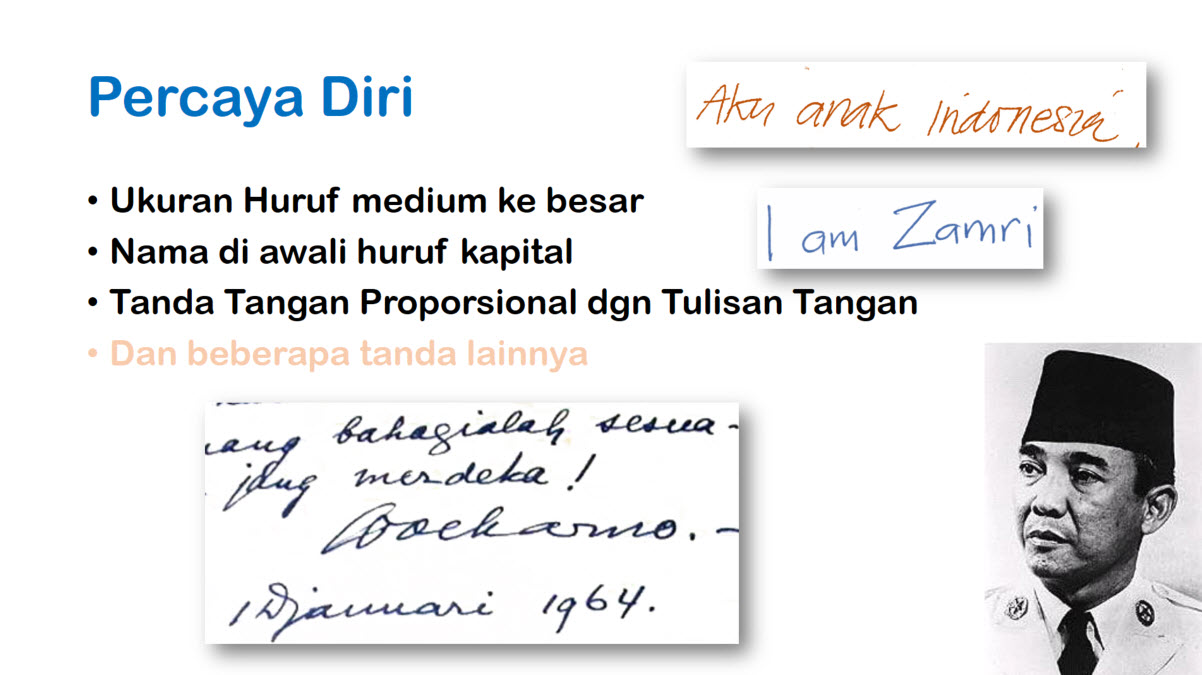 Percaya Diri
Aku anak indonesia
• Ukuran Huruf medium ke besar
I am Zamri
• Nama di awali huruf kapital
• Tanda Tangan Proporsional dgn Tulisan Tangan
• Dan beberapa tanda lainnya
bahagialah sesua-
jang merdeka!
Soekarno.-
1 Djanuari 1964.